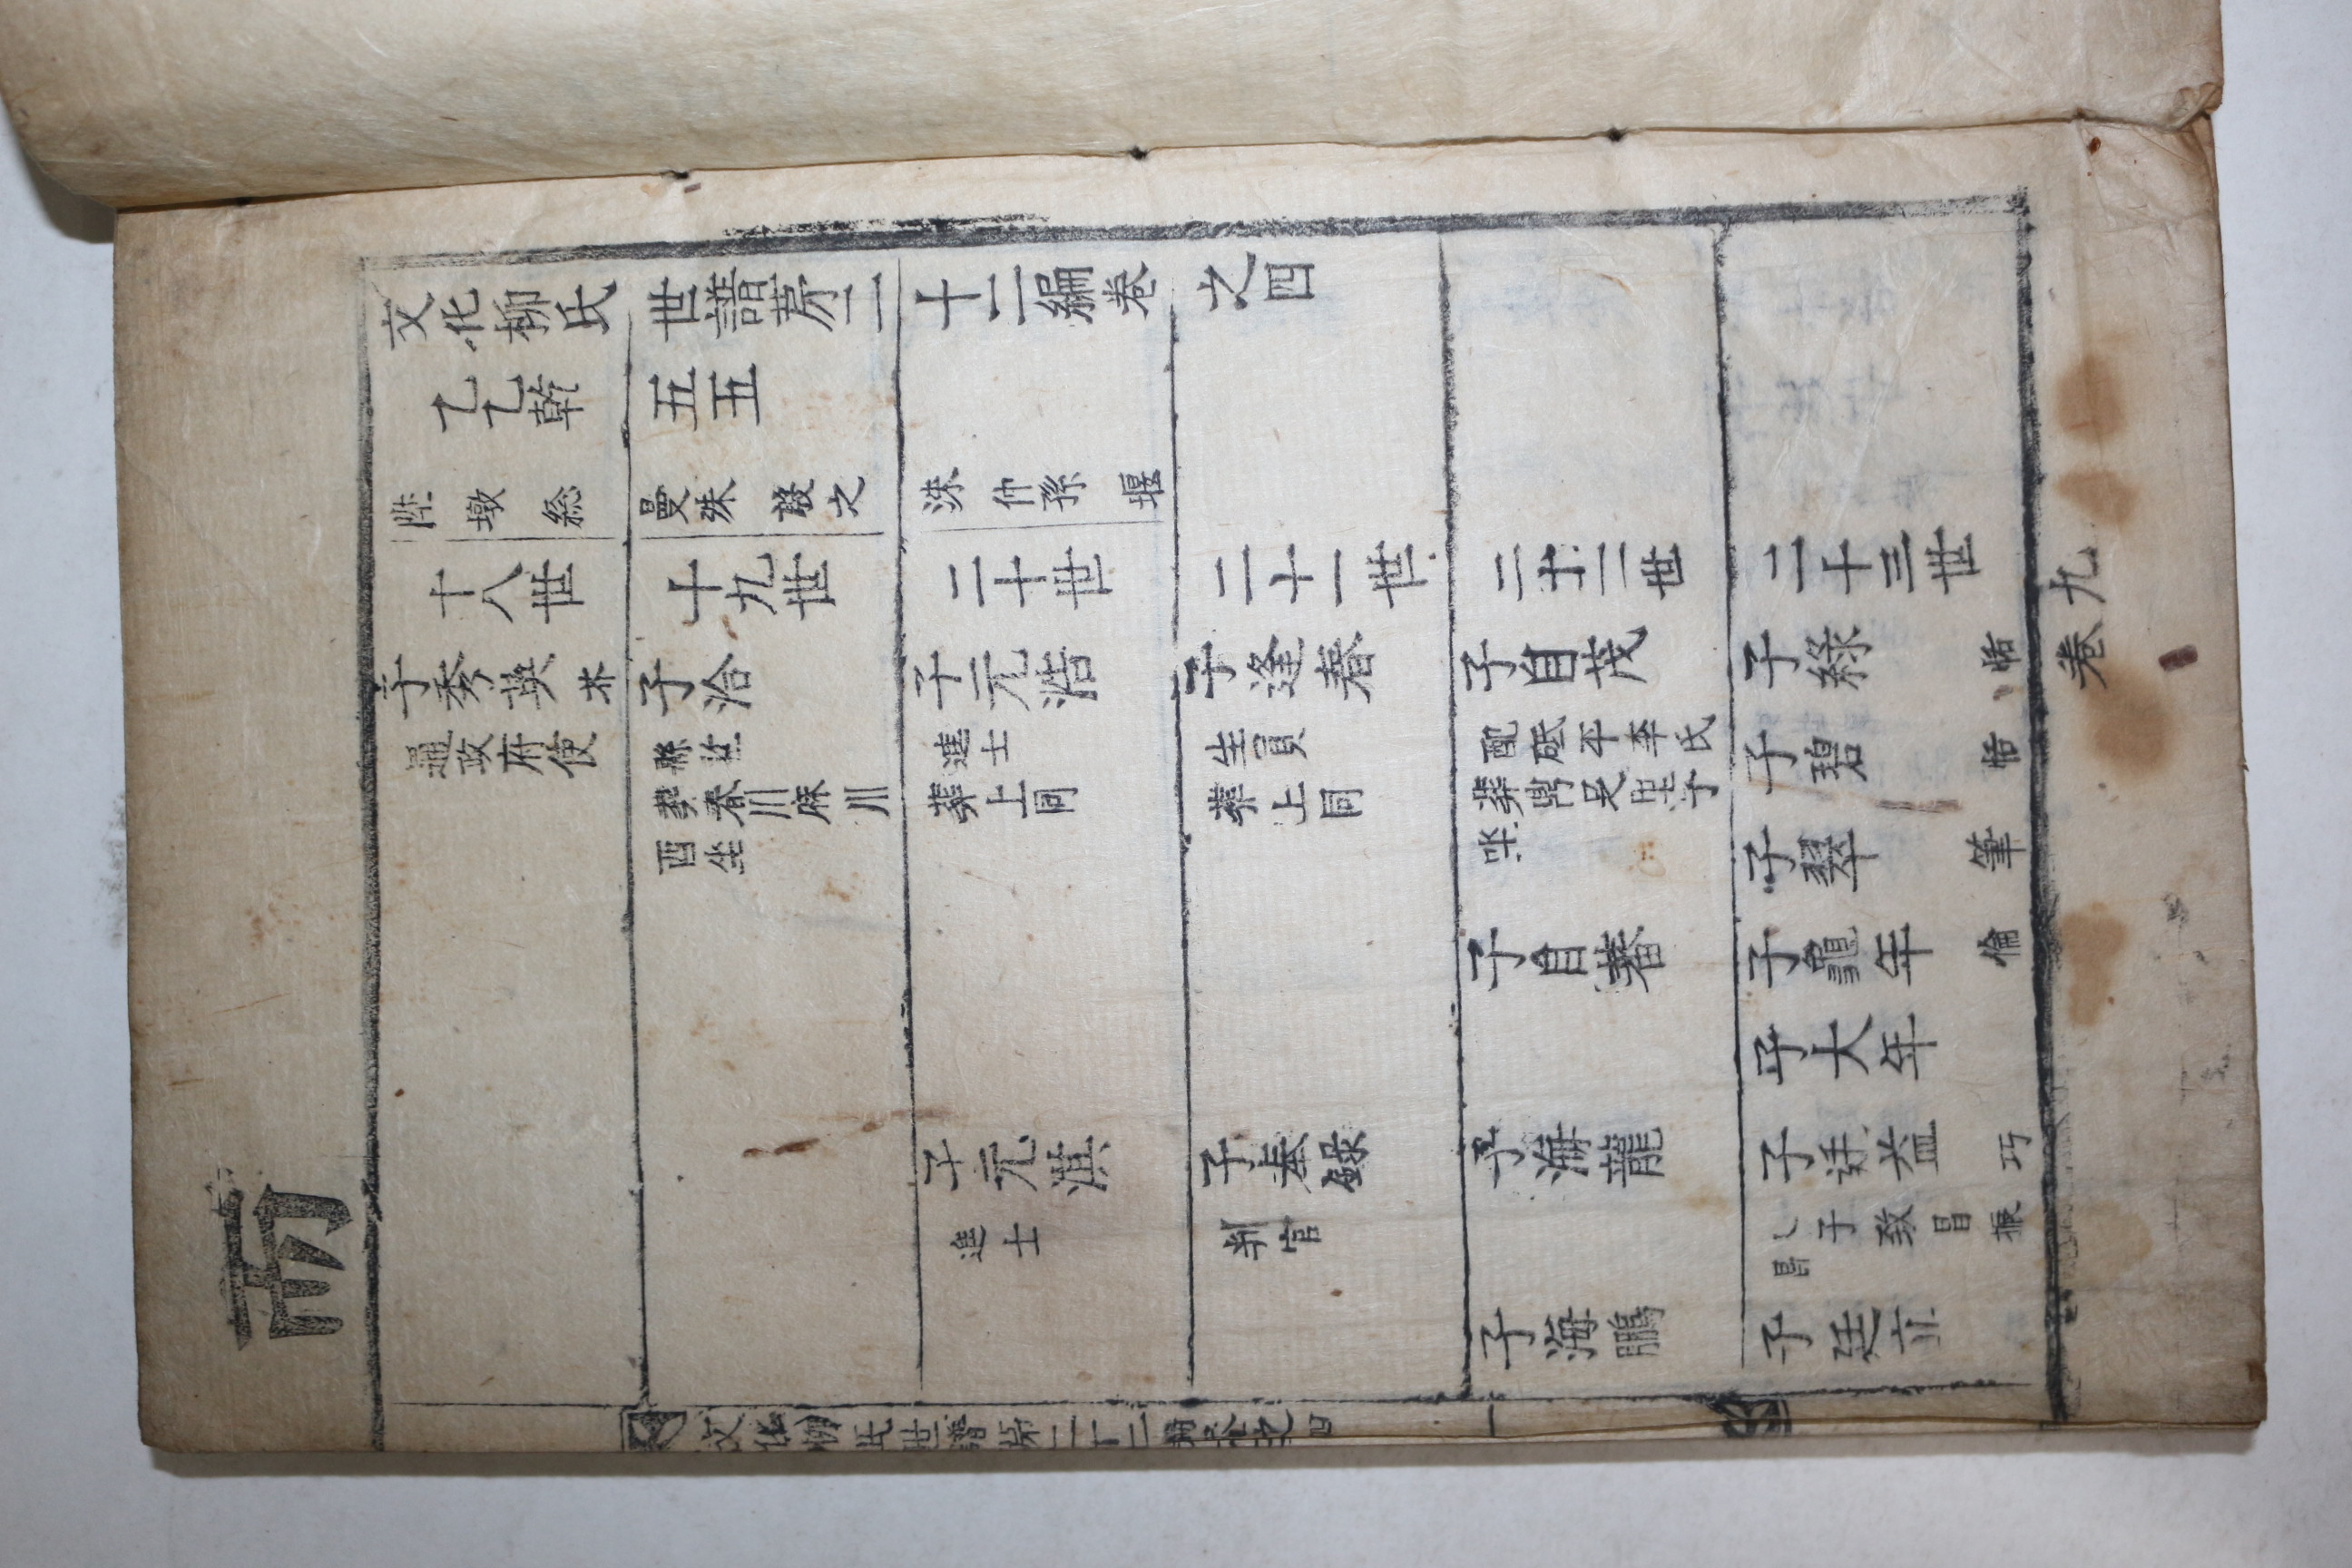 而
文化柳氏世譜苐二十二編卷之四
乙乙乾 五五
陞 墩 総 曼殊 設之 洙 仲孫 堰
十八世 十九世 二十世 二十一世 二十二世 二十三世
子秀英 芥
通政府使
子洽
縣监
葬春川麻川
酉坐
子元浩
進士
葬上同
子逢春
生員
葬上同
子自茂
配砥平李氏
葬鼎足里子
坐
子綠 恬
子碧 恬
子翠 筆
子自蕃
子龜年 倫
子大年
子元淇
進士
子奉錄
判官
子海龍
子廷益 巧
子致昌振
昌
子海鵬
子廷立
九
卷
文化柳氏世譜苐二十二編卷之四 一